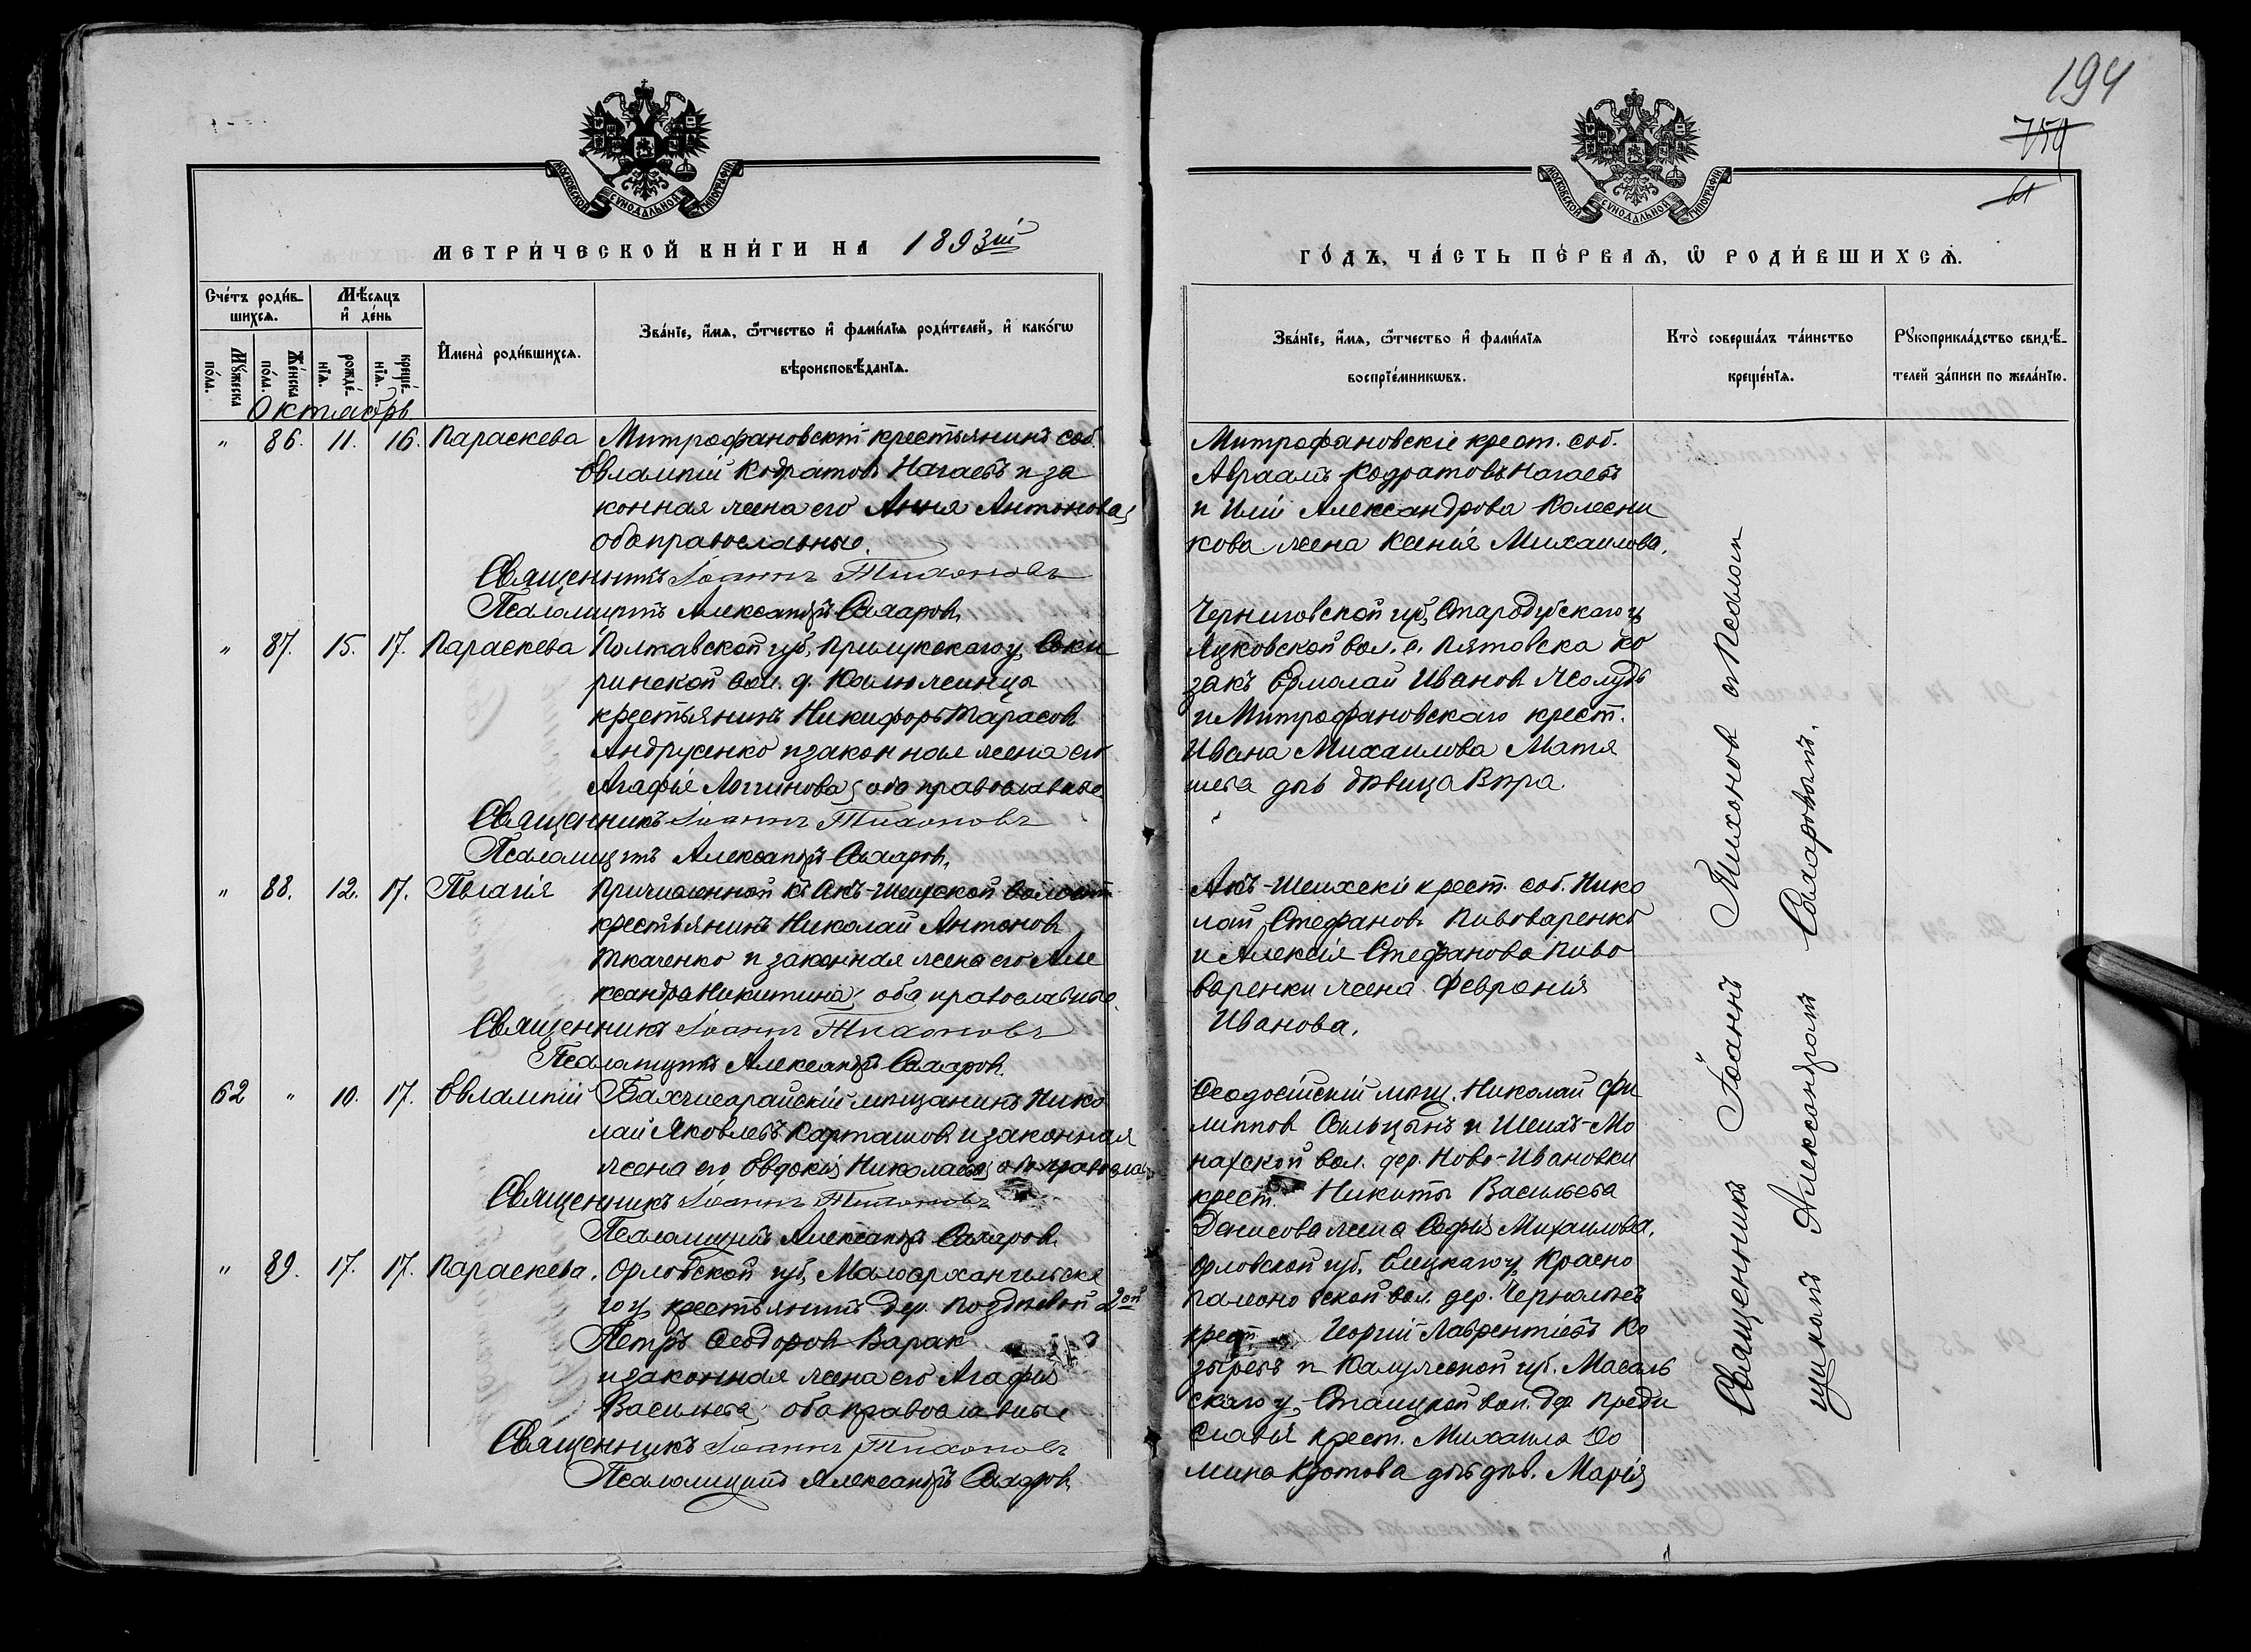 194
750
61
МОСКОВСКОЙ СѴНОДАЛЬНОЙ ТИПОГРАФІИ
МОСКОВСКОЙ СѴНОДАЛЬНОЙ ТИПОГРАФІИ
МЕТРИ́ЧЕСКОЙ КНИ́ГИ НА 1893ій
ГО́ДЪ, ЧА́СТЬ ПЕ́РВАѦ, Ѡ҆ РОДИ́ВШИХСѦ.
Сче́тъ роди́в-
шихсѧ.
Мѣ́сѧцъ
и҆ де́нь
Мꙋ́жеска
по́ла.
Же́нска
по́ла.
рожде́-
нїѧ.
креще́-
нїѧ.
И҆мена̀ роди́вшихсѧ.
Зва́нїе, и҆́мѧ, ѻ҆́тчество и҆ фами́лїѧ роди́телей, и҆ како́гѡ
вѣроисповѣ́данїѧ.
Зва́нїе, и҆́мѧ, ѻ҆́тчество и҆ фами́лїѧ
воспрїе́мникѡвъ.
Кто̀ соверша́лъ та́инство
креще́нїѧ.
Рꙋкоприкла́дство свидѣ́-
телей за́писи по жела́нїю.
Октябрь
" 86. 11. 16. Параскева Митрофановскій крестьянинъ соб.
Евлампій Кодратовъ Нагаевъ и за
конная жена его Анна Антонова;
оба православные.
Священникъ Іоаннъ Тихоновъ
Псаломщикъ Александръ Сахаровъ
Митрофановскіе крест. соб.
Авраамъ Кодратовъ Нагаевъ
и Иліи Александрова Колесни
кова жена Ксенія Михаилова.
" 87. 15. 17. Параскева Полтавской губ. Прилукскаго у. Соки
ринской вол. д. Калюжинца
крестьянинъ Никифоръ Тарасовъ
Андрусенко и законная жена его
Агафія Логгинова; оба православные
Священникъ Іоаннъ Тихоновъ
Псаломщикъ Александръ Сахаровъ
Черниговской губ. Стародубскаго у.
вол. с. Пятовска ко
закъ Ермолай Ивановъ Жолудь
и Митрофановскаго крест.
Ивана Михаилова Матя
шева дочь дѣвица Вѣра
" 88. 12. 17. Пелагія Причисленной къ Акъ-Шеихской волости
крестьянинъ Николай Антоновъ
Ткаченко и законная жена его Але
ксандра Никитина; оба православные
Священникъ Іоаннъ Тихоновъ
Псаломщикъ Александръ Сахаровъ
Акъ-Шеихскіе крест. соб. Нико
лай Стефановъ Пивоваренко
и Алексія Стефанова Пиво
варенки жена Февронія
Иванова.
62 " 10. 17. Евлампій Бахчисарайскій мѣщанинъ Нико
лай Яковлевъ Карташовъ и законная
жена его Евдокія Николаева; оба православ.
Священникъ Іоаннъ Тихоновъ
Псаломщикъ Александръ Сахаровъ
Ѳеодосійскій мѣщ. Николай Фи
липповъ Сальцынъ и Шеихъ-Мо
нахской вол. дер. Ново-Ивановки
крест. Никиты Васильева
Денисова жена Софія Михаилова.
" 89. 17. 17. Параскева. Орловской губ. Малоархангельска
го у. крестьянинъ дер. Поздѣевой 2ой
Петръ Ѳеодоровъ Варак
и законная жена его Агафія
Васильева; оба православные
Священникъ Іоаннъ Тихоновъ
Псаломщикъ Александръ Сахаровъ
Орловской губ. Елецкаго у. Красно
вол. дер.
крест. Георгій Лаврентіевъ Ко
зыревъ и Калужской губ. Масаль
скаго у. вол. дер.
крест. Михаила Ѳо
мина Кротова дочь дѣв. Марія
Священникъ Іоаннъ Тихоновъ съ Псалом
щикомъ Александромъ Сахаровымъ.